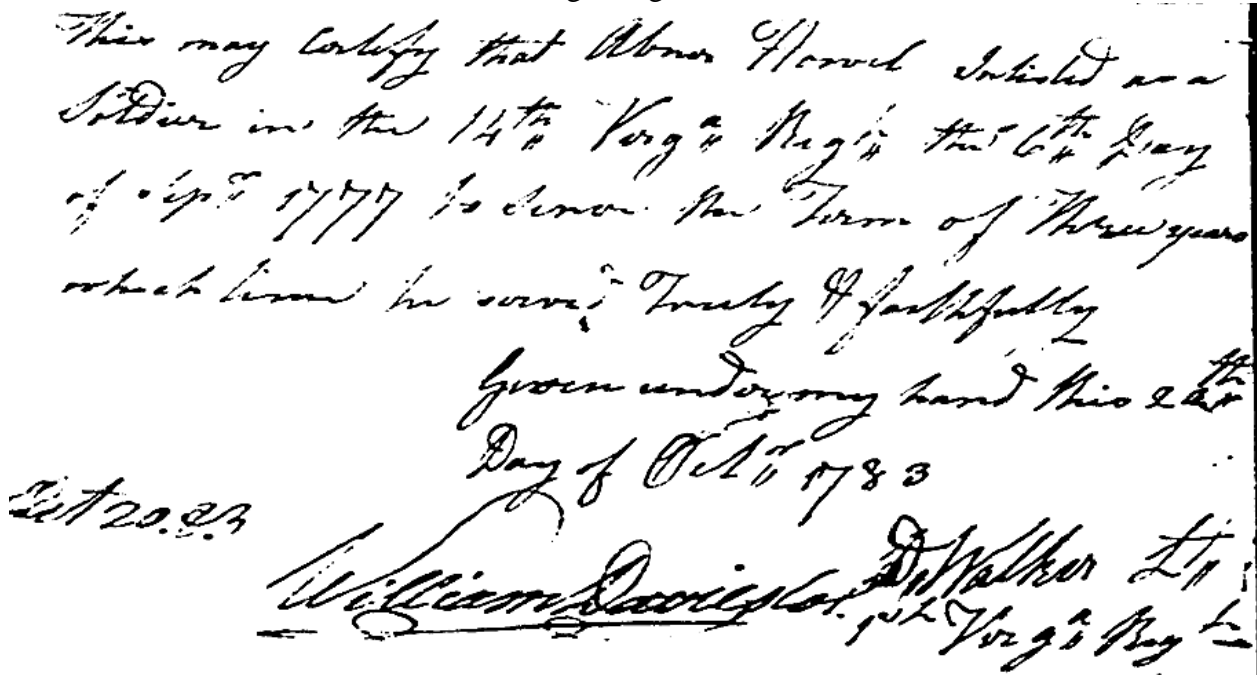 This may Certify that Abner Norvel Inlisted as a
Soldier in the 14th Virga Regt the 6th Day
of Sepr 1777 to serve the Term of Three years
which time he serv'd Truly & faithfully
Given under my hand this 20th
Day of Octr 1783
Oct 20. 83
William Davies Col.
D. Walker Lt
1st Virga Regt